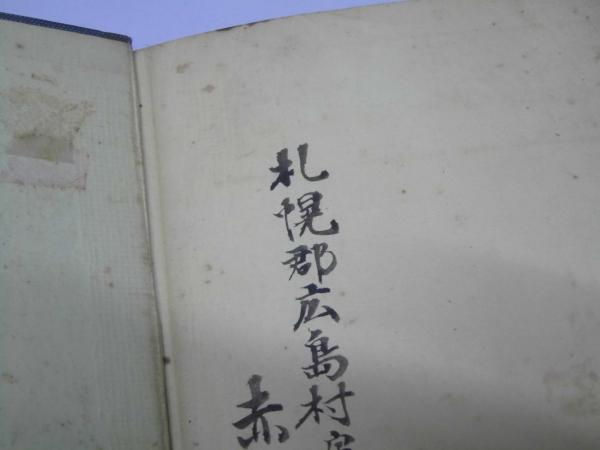 札幌郡広島村
赤